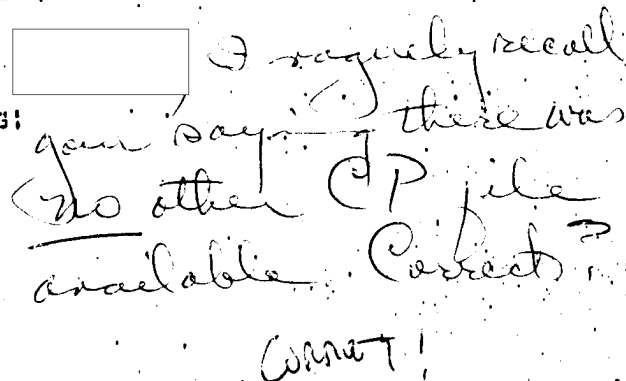 I vaguely recall
your saying there was
no other CP file
available. Correct?
CORRECT!